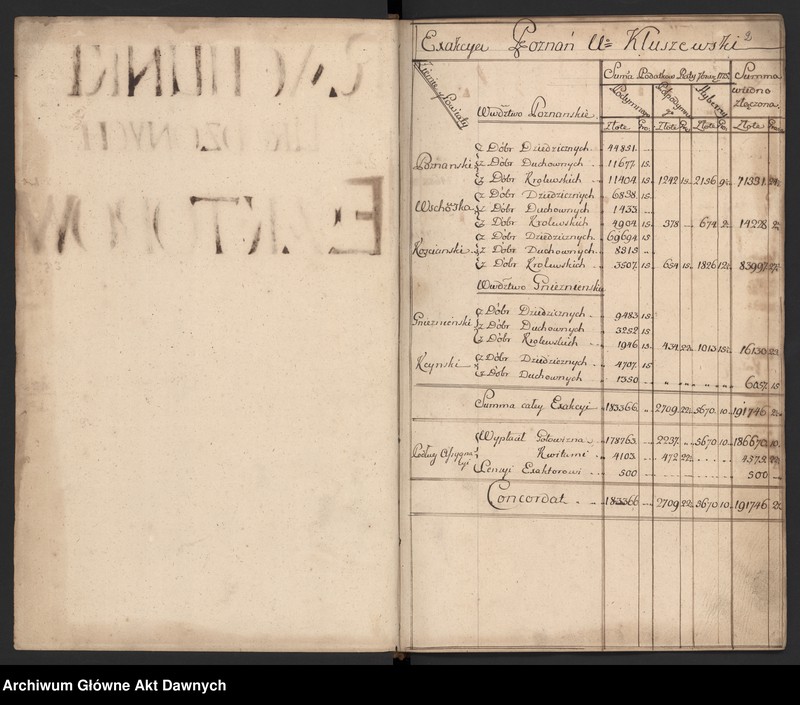 RACHUNKI
Exakcya Poznań Ur Kluszewski 2
Ziemie y Powiaty
Summa Podatkow Raty
Summa
wiedno
złączona.
Podymnego
Hyberny
Wwdztwo Poznanskie
Złote Gro. Złote Gr. Złote Gr. Złote Gro.
z Dobr Dziedzicznych 44851.
Poznanski z Dobr Duchownych 11677 15
z Dobr Krolewskich 11404 15 1242 15 2156 9 71331
z Dobr Dziedzicznych 6838 15
Wschowska z Dobr Duchownych 1433
z Dobr Krolewskich 4904 15 378 674 2 14228
z Dobr Dziedzicznych 69694 15
Koscianski z Dobr Duchownych 8315
z Dobr Krolewskich 3507 15 654 15 1826 12 83997
Wwdztwo Gnieznienskie
z Dobr Dziedzicznych 9483 15
Gnieznienski z Dobr Duchownych 3252 15
z Dobr Krolewskich 1946 15 434 22 1013 15 16130
Kcynski z Dobr Dziedzicznych 4707 15
z Dobr Duchownych 1350 6057 15
Summa całey Exakcyi 183366 2709 22 5670 10 191746
Wypłacił Gotowizna 178763 2237 5670 10 186670 10
Podług Assygnacyi Kwitami 4103 472 22 4575
Pensyi Exaktorowi 500 500
Concordat 183366 2709 22 5670 10 191746
Archiwum Główne Akt Dawnych